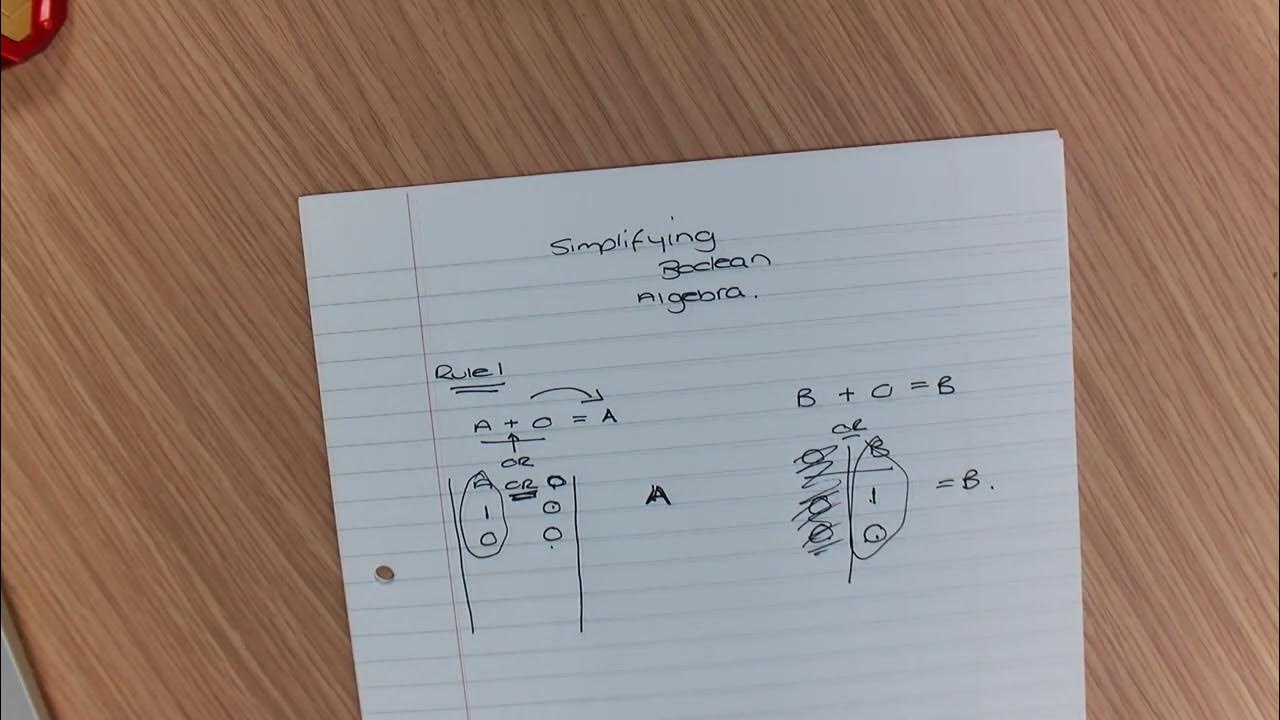 Simplifying
Boolean
Algebra.
Rule 1
A + 0 = A
OR
A OR 0
1 0
0 0
A
B + 0 = B
OR
0 B
1 = B.
0 0